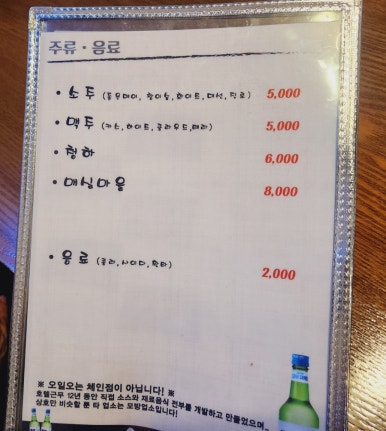 주류 · 음료
• 소주 (좋은데이, 참이슬, 화이트, 대선, 진로) 5,000
• 맥주 (카스, 하이트, 클라우드, 테라) 5,000
• 청하 6,000
• 매실마을 8,000
• 음료 (콜라, 사이다, 환타) 2,000
※ 오일오는 체인점이 아닙니다! ※
호텔근무 12년 동안 직접 소스와 재료음식 전부를 개발하고 만들었으며,
상호만 비슷할 뿐 타 업소는 모방업소입니다!